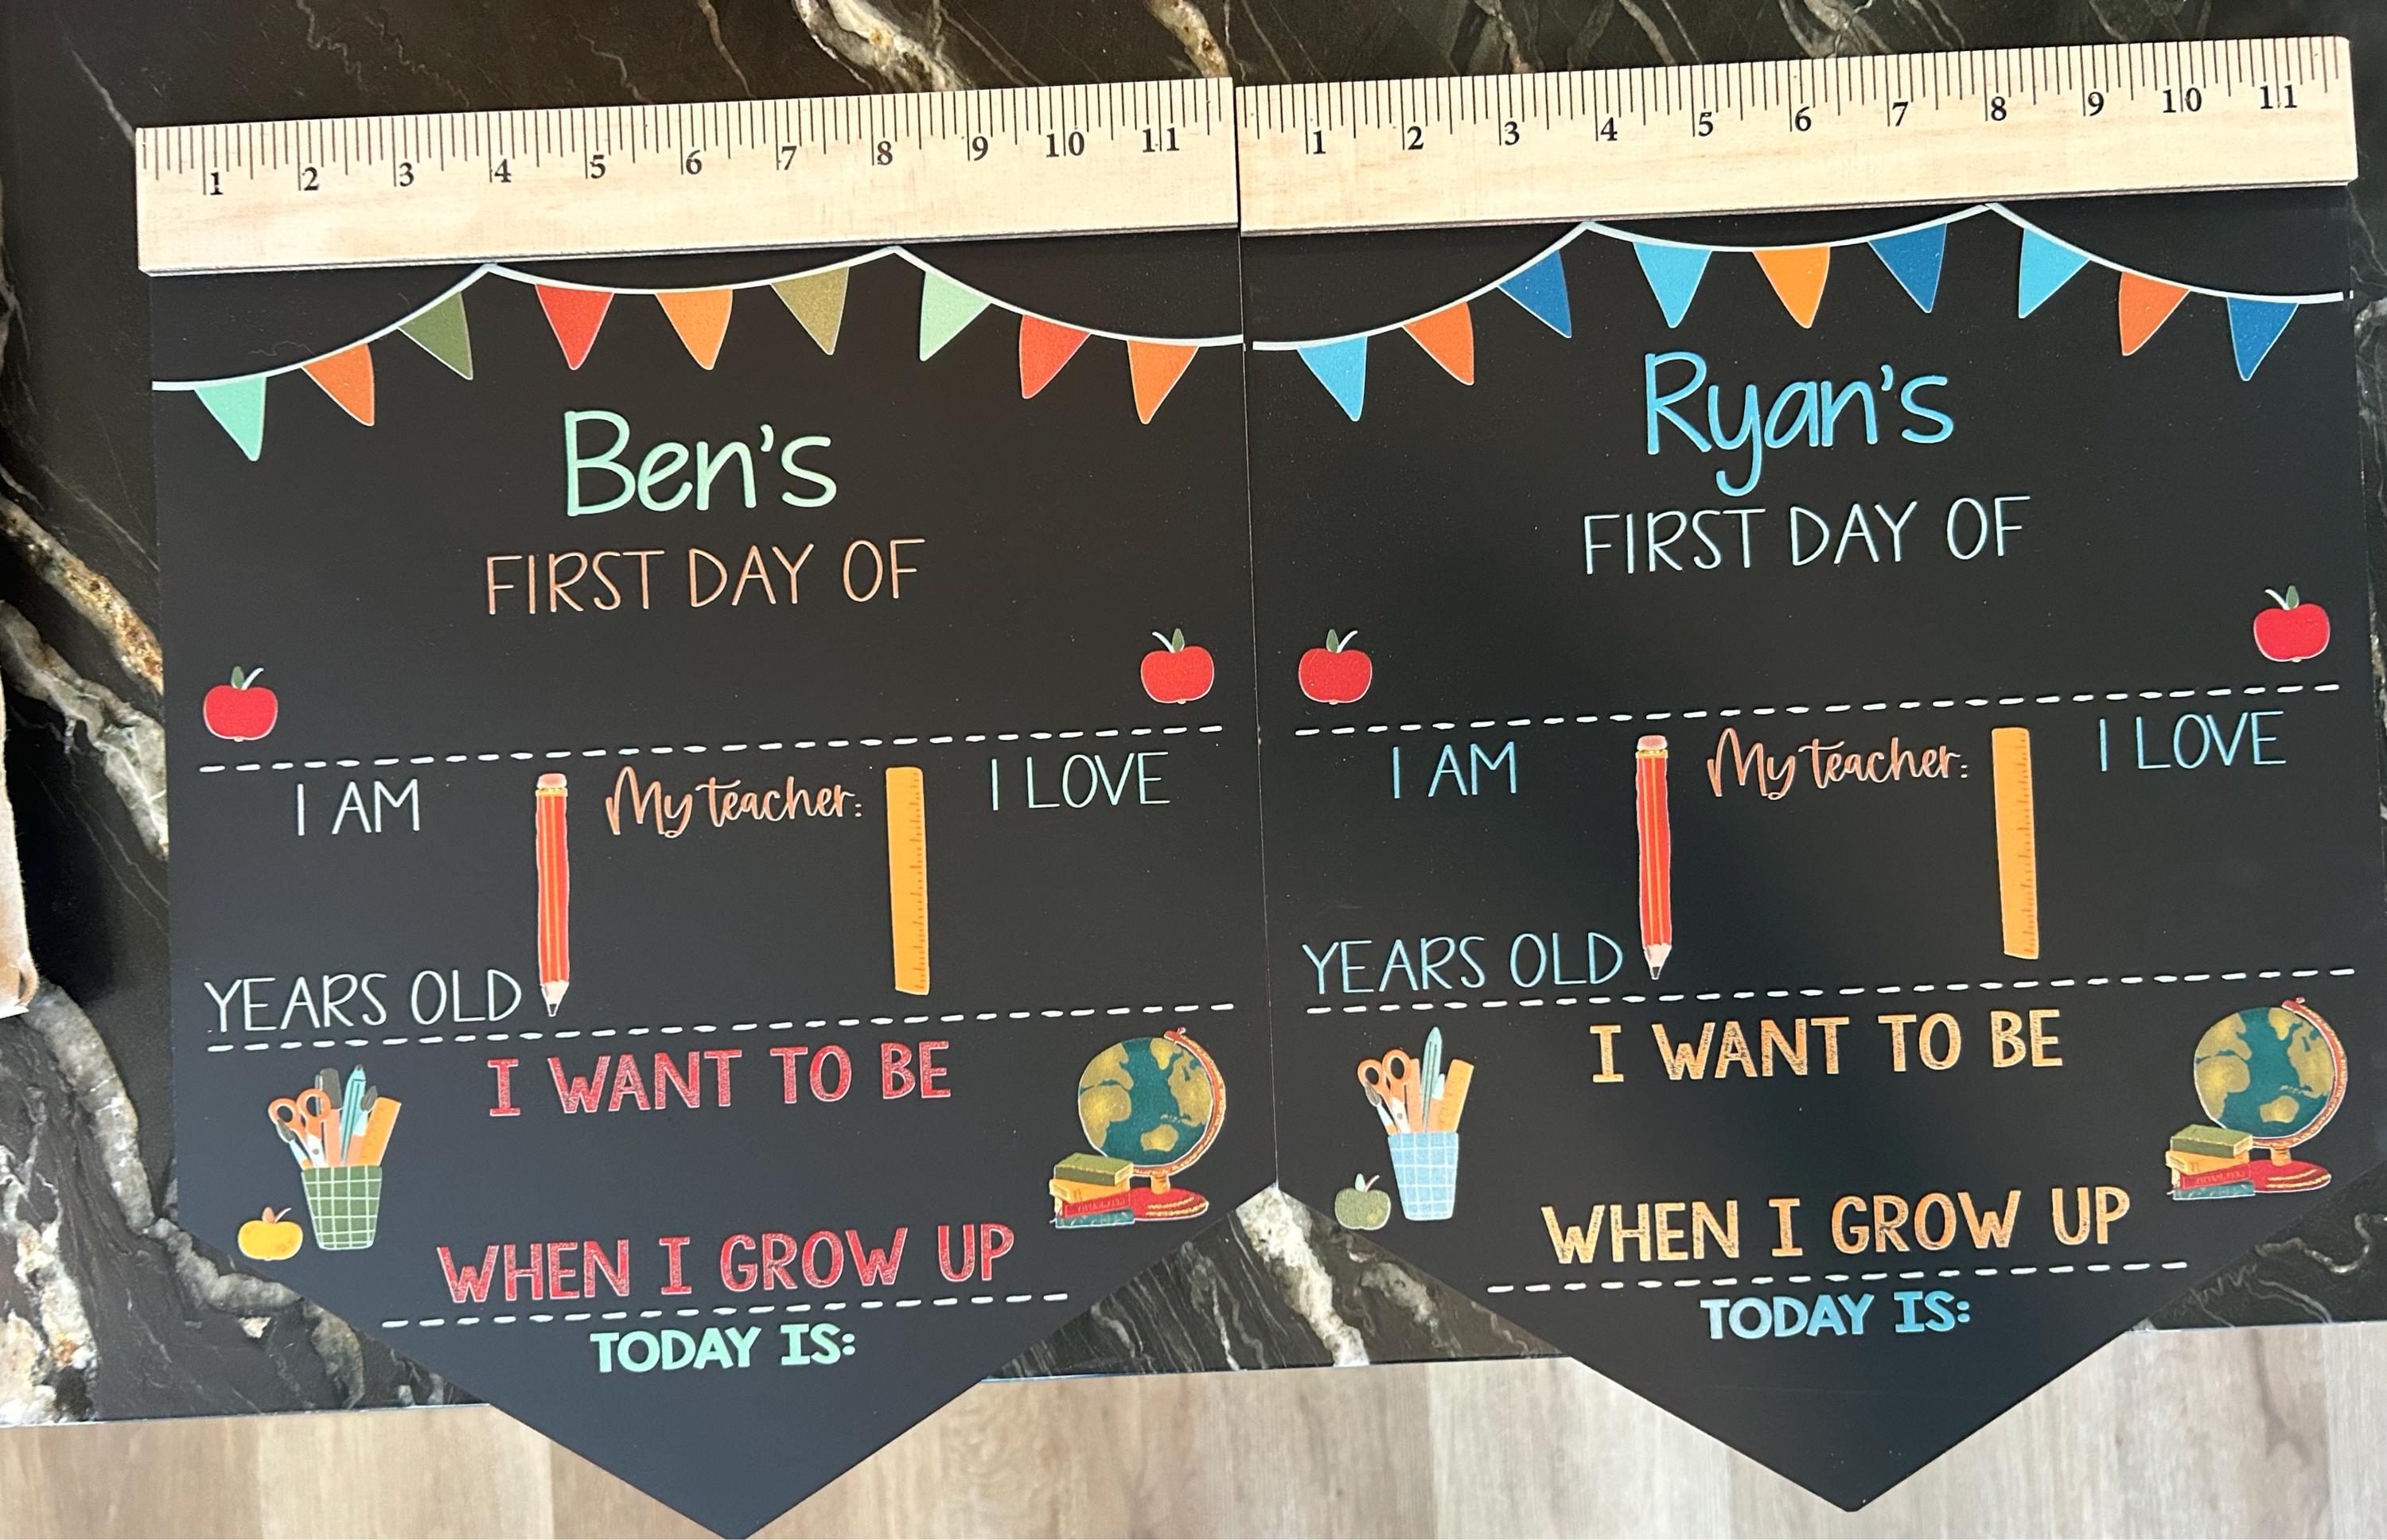 1 2 3 4 5 6 7 8 9 10 11
Ben's
FIRST DAY OF
I AM
My teacher:
I LOVE
YEARS OLD
I WANT TO BE
WHEN I GROW UP
TODAY IS:
1 2 3 4 5 6 7 8 9 10 11
Ryan's
FIRST DAY OF
I AM
My teacher:
I LOVE
YEARS OLD
I WANT TO BE
WHEN I GROW UP
TODAY IS: